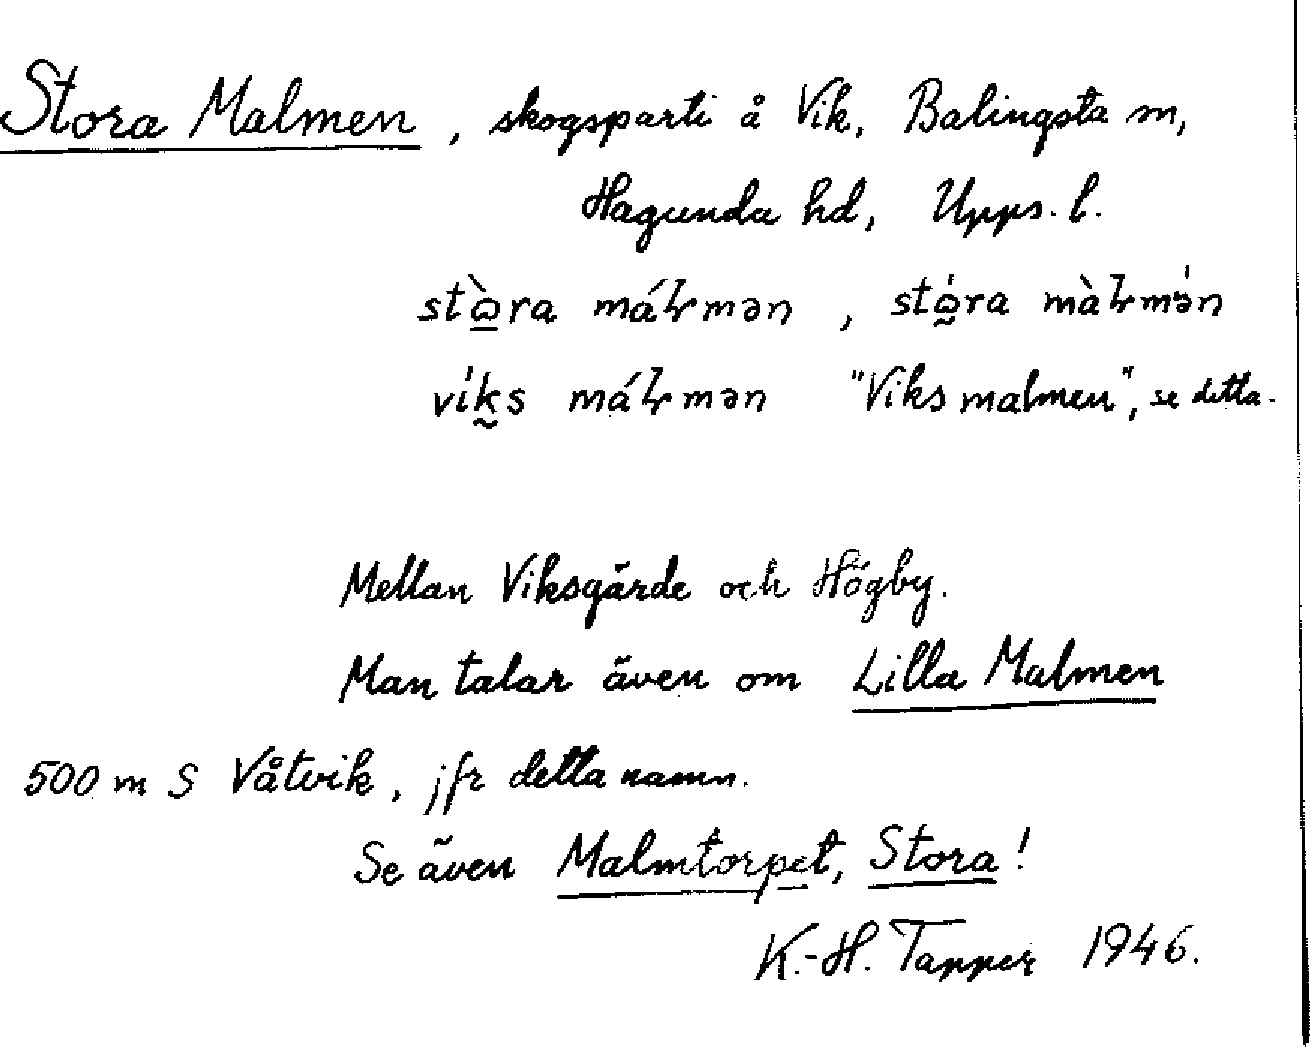 Stora Malmen, skogsparti å Vik, Balingsta sn,
Hagunda hd, Upps. l.
"Viks malmen", se detta.
Mellan Viksgärde och Högby.
Man talar även om Lilla Malmen
500 m S Våtvik, jfr detta namn.
Se även Malmtorpet, Stora!
K.-H. Tapper 1946.